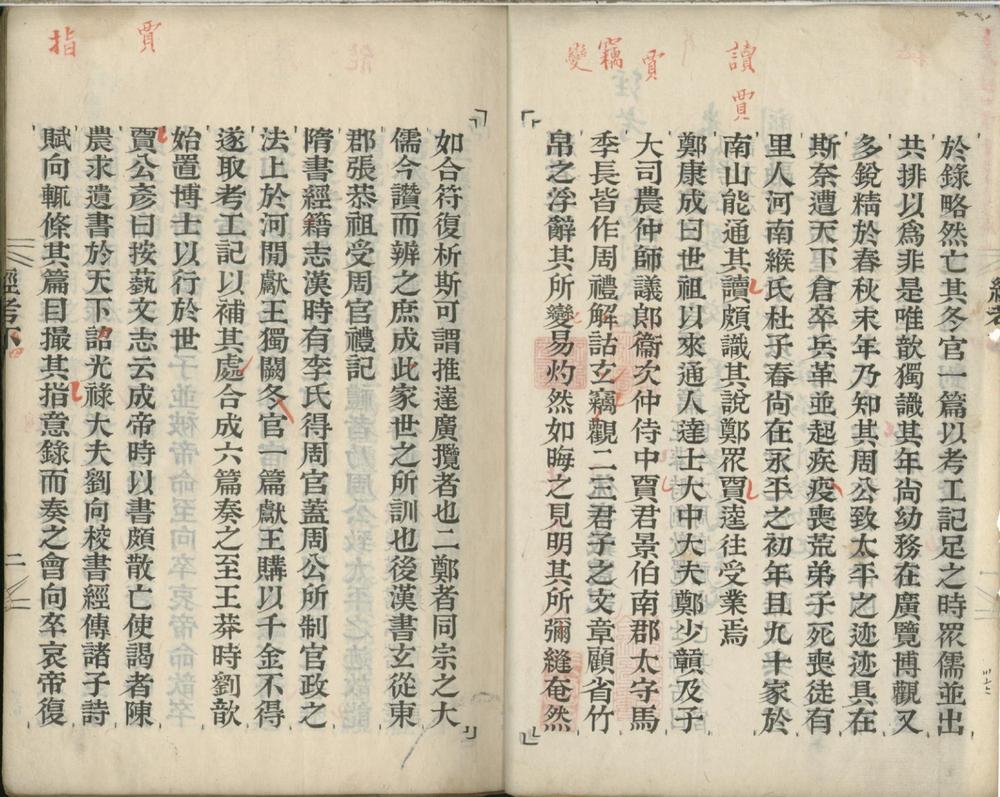 讀賈
賈
竊
變
於錄略然亡其冬官一篇以考工記足之時眾儒並出
共排以爲非是唯歆獨識其年尚幼務在廣覽博觀又
多銳精於春秋末年乃知其周公致太平之迹迹具在
斯奈遭天下倉卒兵革並起疾疫喪荒弟子死喪徒有
里人河南緱氏杜子春尚在永平之初年且九十家於
南山能通其讀頗識其說鄭眾賈逵往受業焉
鄭康成曰世祖以來通人達士大中大夫鄭少贑及子
大司農仲師議郎衞次仲侍中賈君景伯南郡太守馬
季長皆作周禮解詁玄竊觀二三君子之文章顧省竹
帛之浮辭其所變易灼然如晦之見明其所彌縫奄然
賈
指
如合符復析斯可謂推達廣攬者也二鄭者同宗之大
儒今讚而辨之庶成此家世之所訓也後漢書玄從東
郡張恭祖受周官禮記
隋書經籍志漢時有李氏得周官蓋周公所制官政之
法上於河間獻王獨闕冬官一篇獻王購以千金不得
遂取考工記以補其處合成六篇奏之至王莽時劉歆
始置博士以行於世
賈公彥曰按蓺文志云成帝時以書頗散亡使謁者陳
農求遺書於天下詔光祿大夫劉向校書經傳諸子詩
賦向輒條其篇目撮其指意錄而奏之會向卒哀帝復
經考下
二